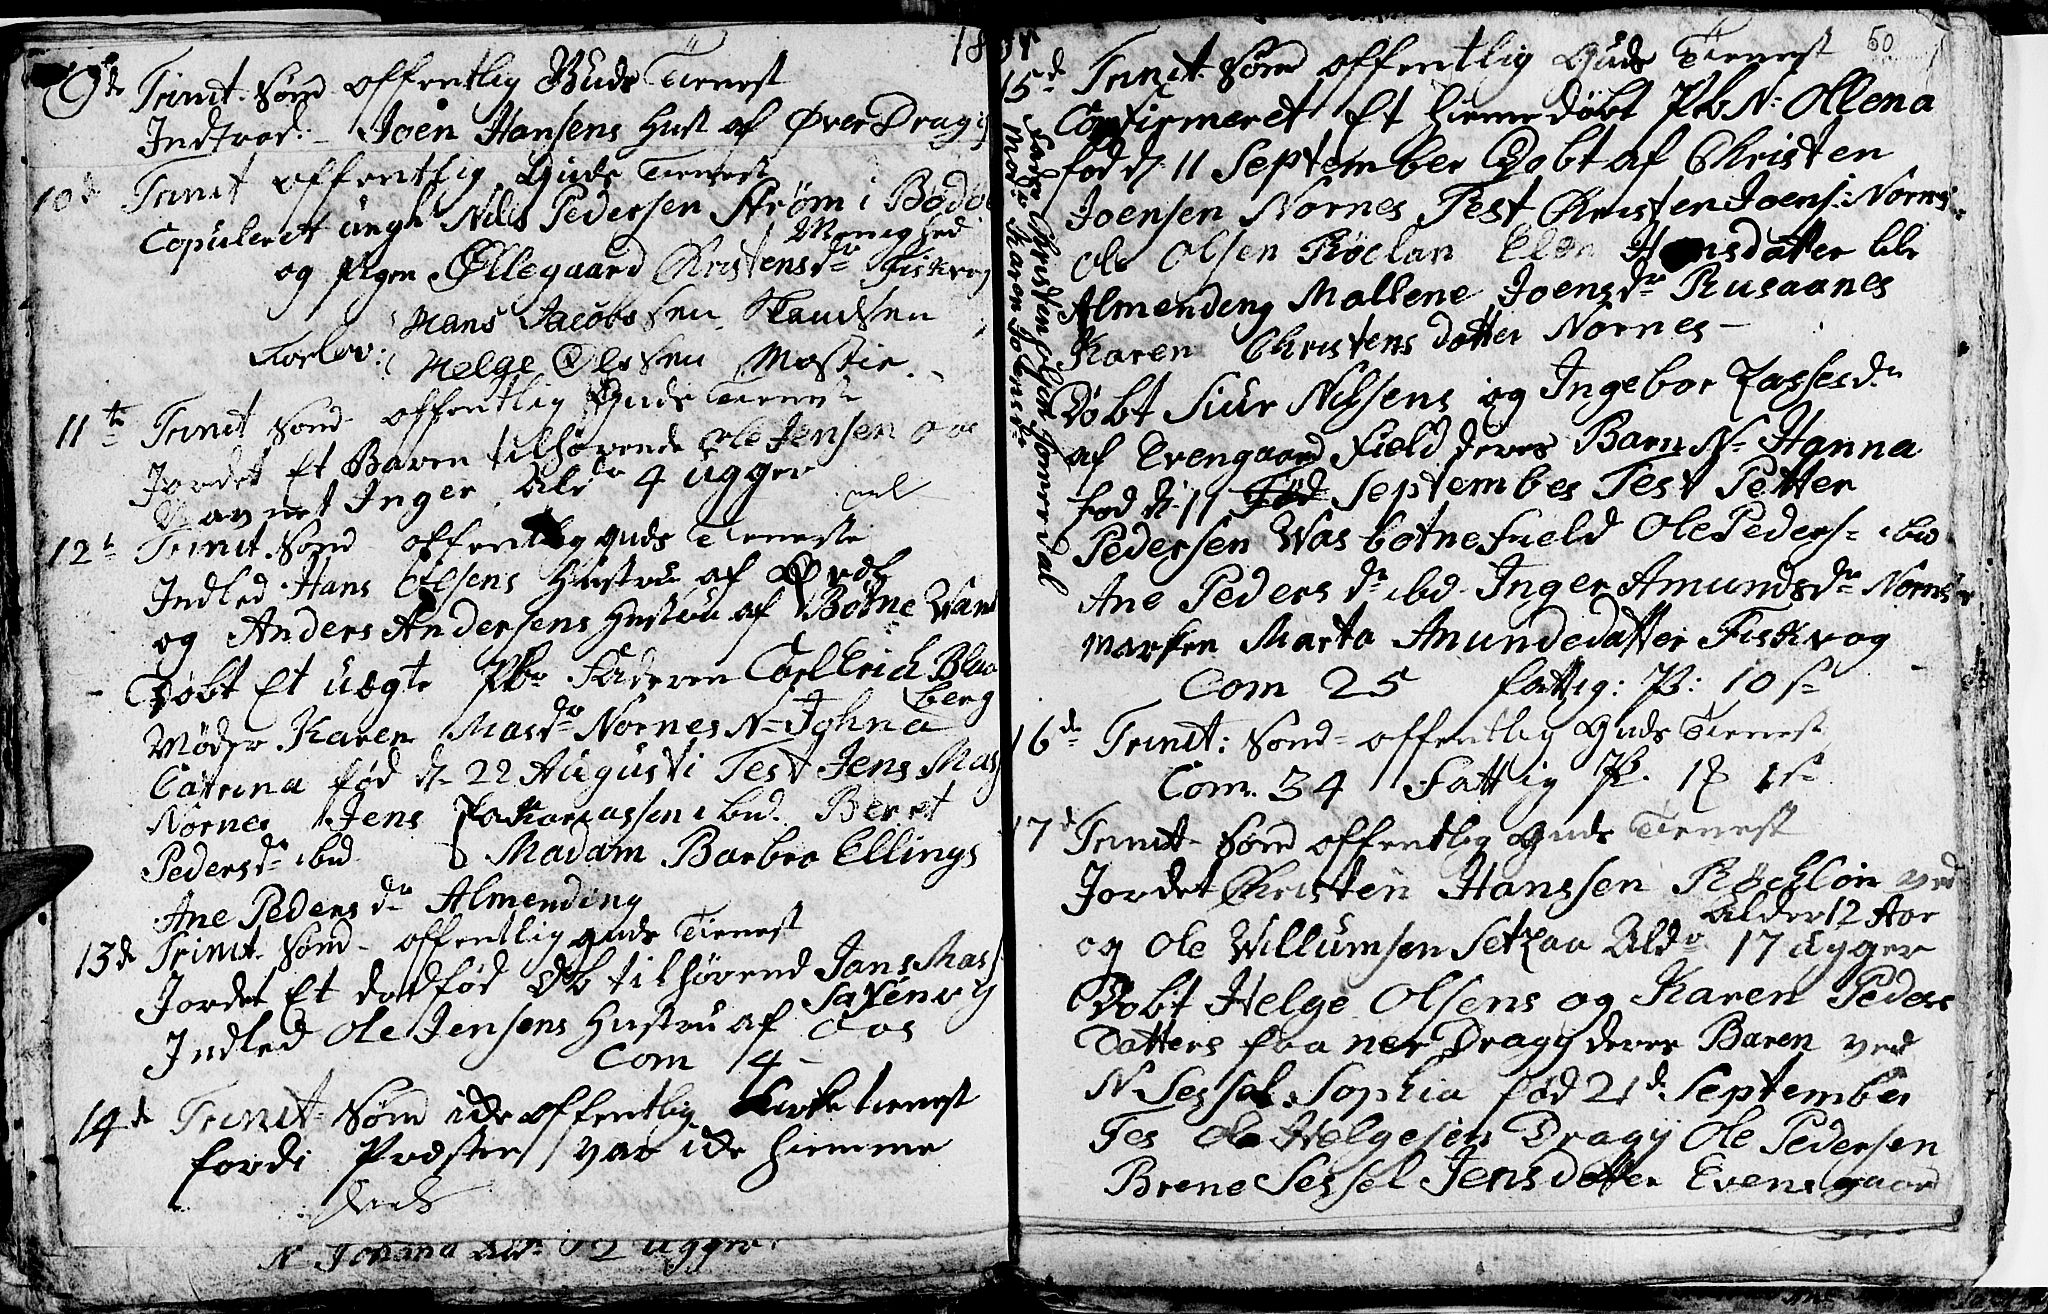 18
9de Trinit. Sønd offentlig Guds Tienest
Indtrod: Joen Hansens Hust af Øver Dragy
10d Trinit offentlig Guds Tienest
Copuleret ungk Nils Pedersen Strøm i Bødø
Menighed
og Pigen Øllegaard Christensdr Fiskvog
Hans Jacobssen Skaudsen
Forlov: Helge Olssen Mostie
11te Trinit Sønd offentlig Guds Tieneste
Jordet Et Baren tilhørende Ole Jensen Oos
Navnet Inger Aldr 4 Ugger
12t Trinit. Sønd offentlig Guds Tieneste
Indled Hans Olsens Hustru af
og Anders Andersens Hustru af Botne Vand
Døbt Et uegte Pbr Faderen Carl Erich Blaa
berg
Møder Karen Masdr Nornes N- Johna
Catrina fød d- 22 Augusti Test Jens Mas
Nornes Jens Zakariassen ibid. Beret
Pedersdr ibid Madam Barbro Ellings
Ane Pedersdr Almending
13de Trinit. Sønd- offentlig Guds Tienest
Jordet Et dødfød Db tilhørend Jans Mass
Saxenvig
Indled Ole Jensens Hustru af Oos
Com 14 -
14de Trinit- Sønd ikke offentlig Kirke tienest
fordi Præsten var ikke hiemme
N Johanna Aldr 2 Ugger
50
15d Trinit. Sønd offentlig Guds Tienest
Confirmeret Et hiemedøbt Pb N: Ollena
fød d: 11 September Døbt af Christen
Joensen Nornes Test Christen Joens: Nornes
Ole Olsen Röclan Elen Hansdatter lile
Almending Mallene Joensdr Rusaanes
Karen Christens datter Nornes -
Fader Christen Jonerdal
Mod: Karen Johensdr
Døbt Siur Nilsens og Ingebor Zassesdr
af Evengaard Field deres Barn N- Hanna
fød d: 11 September Test Petter
Pedersen Wasbotnefield Ole Peders- ibid
Ane Pedersdr ibid Inger Amundsdr Nornes
marken Marta Amundsdatter Fiskvog
Com 25 fattig: P: 10 s-
16de Trinit: Sønd- offentlig Guds Tienest
Com. 34 Fattig P. 1 1 s-
17d Trinit- Sønd offentlig Guds Tienest
Jordet Christen Hanssen Røchlon ved
Alder 12 Aar
og Ole Willumsen Setzaa Aldr 17 Ugger
Døbt Helge Olsens og Karen Peders
Datters fra ner Dragy deres Baren ved
N Sessel Sophia fød 21d September
Tes Ole Helgesen Dragy Ole Pedersen
Brene Sessel Jensdatter Evensgaard